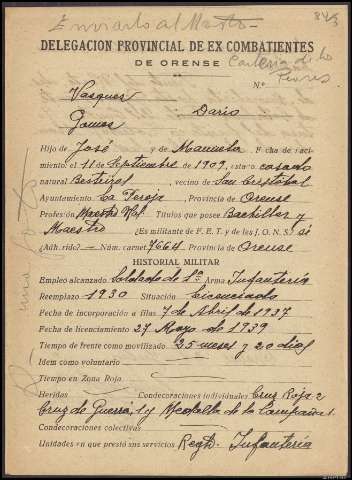 Enviarlo al Maestro
843
DELEGACION PROVINCIAL DE EX-COMBATIENTES
DE ORENSE
Cartería de
N.º
Vasques
Gomes Dario
Hijo de José y de Manuela Fecha de naci-
miento el 11 de Septiembre de 1909, estado casado
natural vecino de San Cristobal
Ayuntamiento La Peroja, Provincia de Orense
Profesión Maestro Nal. Títulos que posee Bachiller y
Maestro ¿Es militante de F. E. T. y de las J. O. N. S.? si
¿Adherido? Núm. carnet 7664 Provincia de Orense
HISTORIAL MILITAR
Empleo alcanzado Soldado de 1ª Arma Infantería
Reemplazo 1930 Situación Licenciado
Fecha de incorporación a filas 7 de Abril de 1937
Fecha de licenciamiento 27 Mayo de 1939
Tiempo de frente como movilizado 25 meses y 20 dias
Idem como voluntario
Tiempo en Zona Roja
Heridas Condecoraciones individuales Cruz Roja 2
Cruz de Guerra, 1 y Medalla de la Campaña 1
Condecoraciones colectivas
Unidades en que prestó sus servicios Regto. Infantería